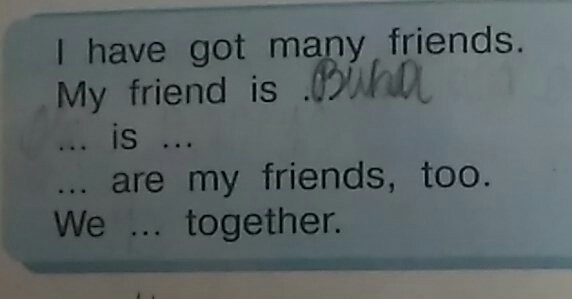 I have got many friends.
My friend is .Вика
... is ...
... are my friends, too.
We ... together.